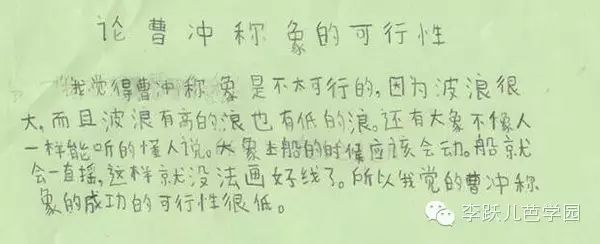 论曹冲称象的可行性
我觉得曹冲称象是不太可行的，因为波浪很
大，而且波浪有高的浪也有低的浪。还有大象不像人
一样能听的懂人说。大象上船的时候应该会动。船就
会一直摇，这样就没法画好线了。所以我觉的曹冲称
象的成功的可行性很低。
李跃儿芭学园